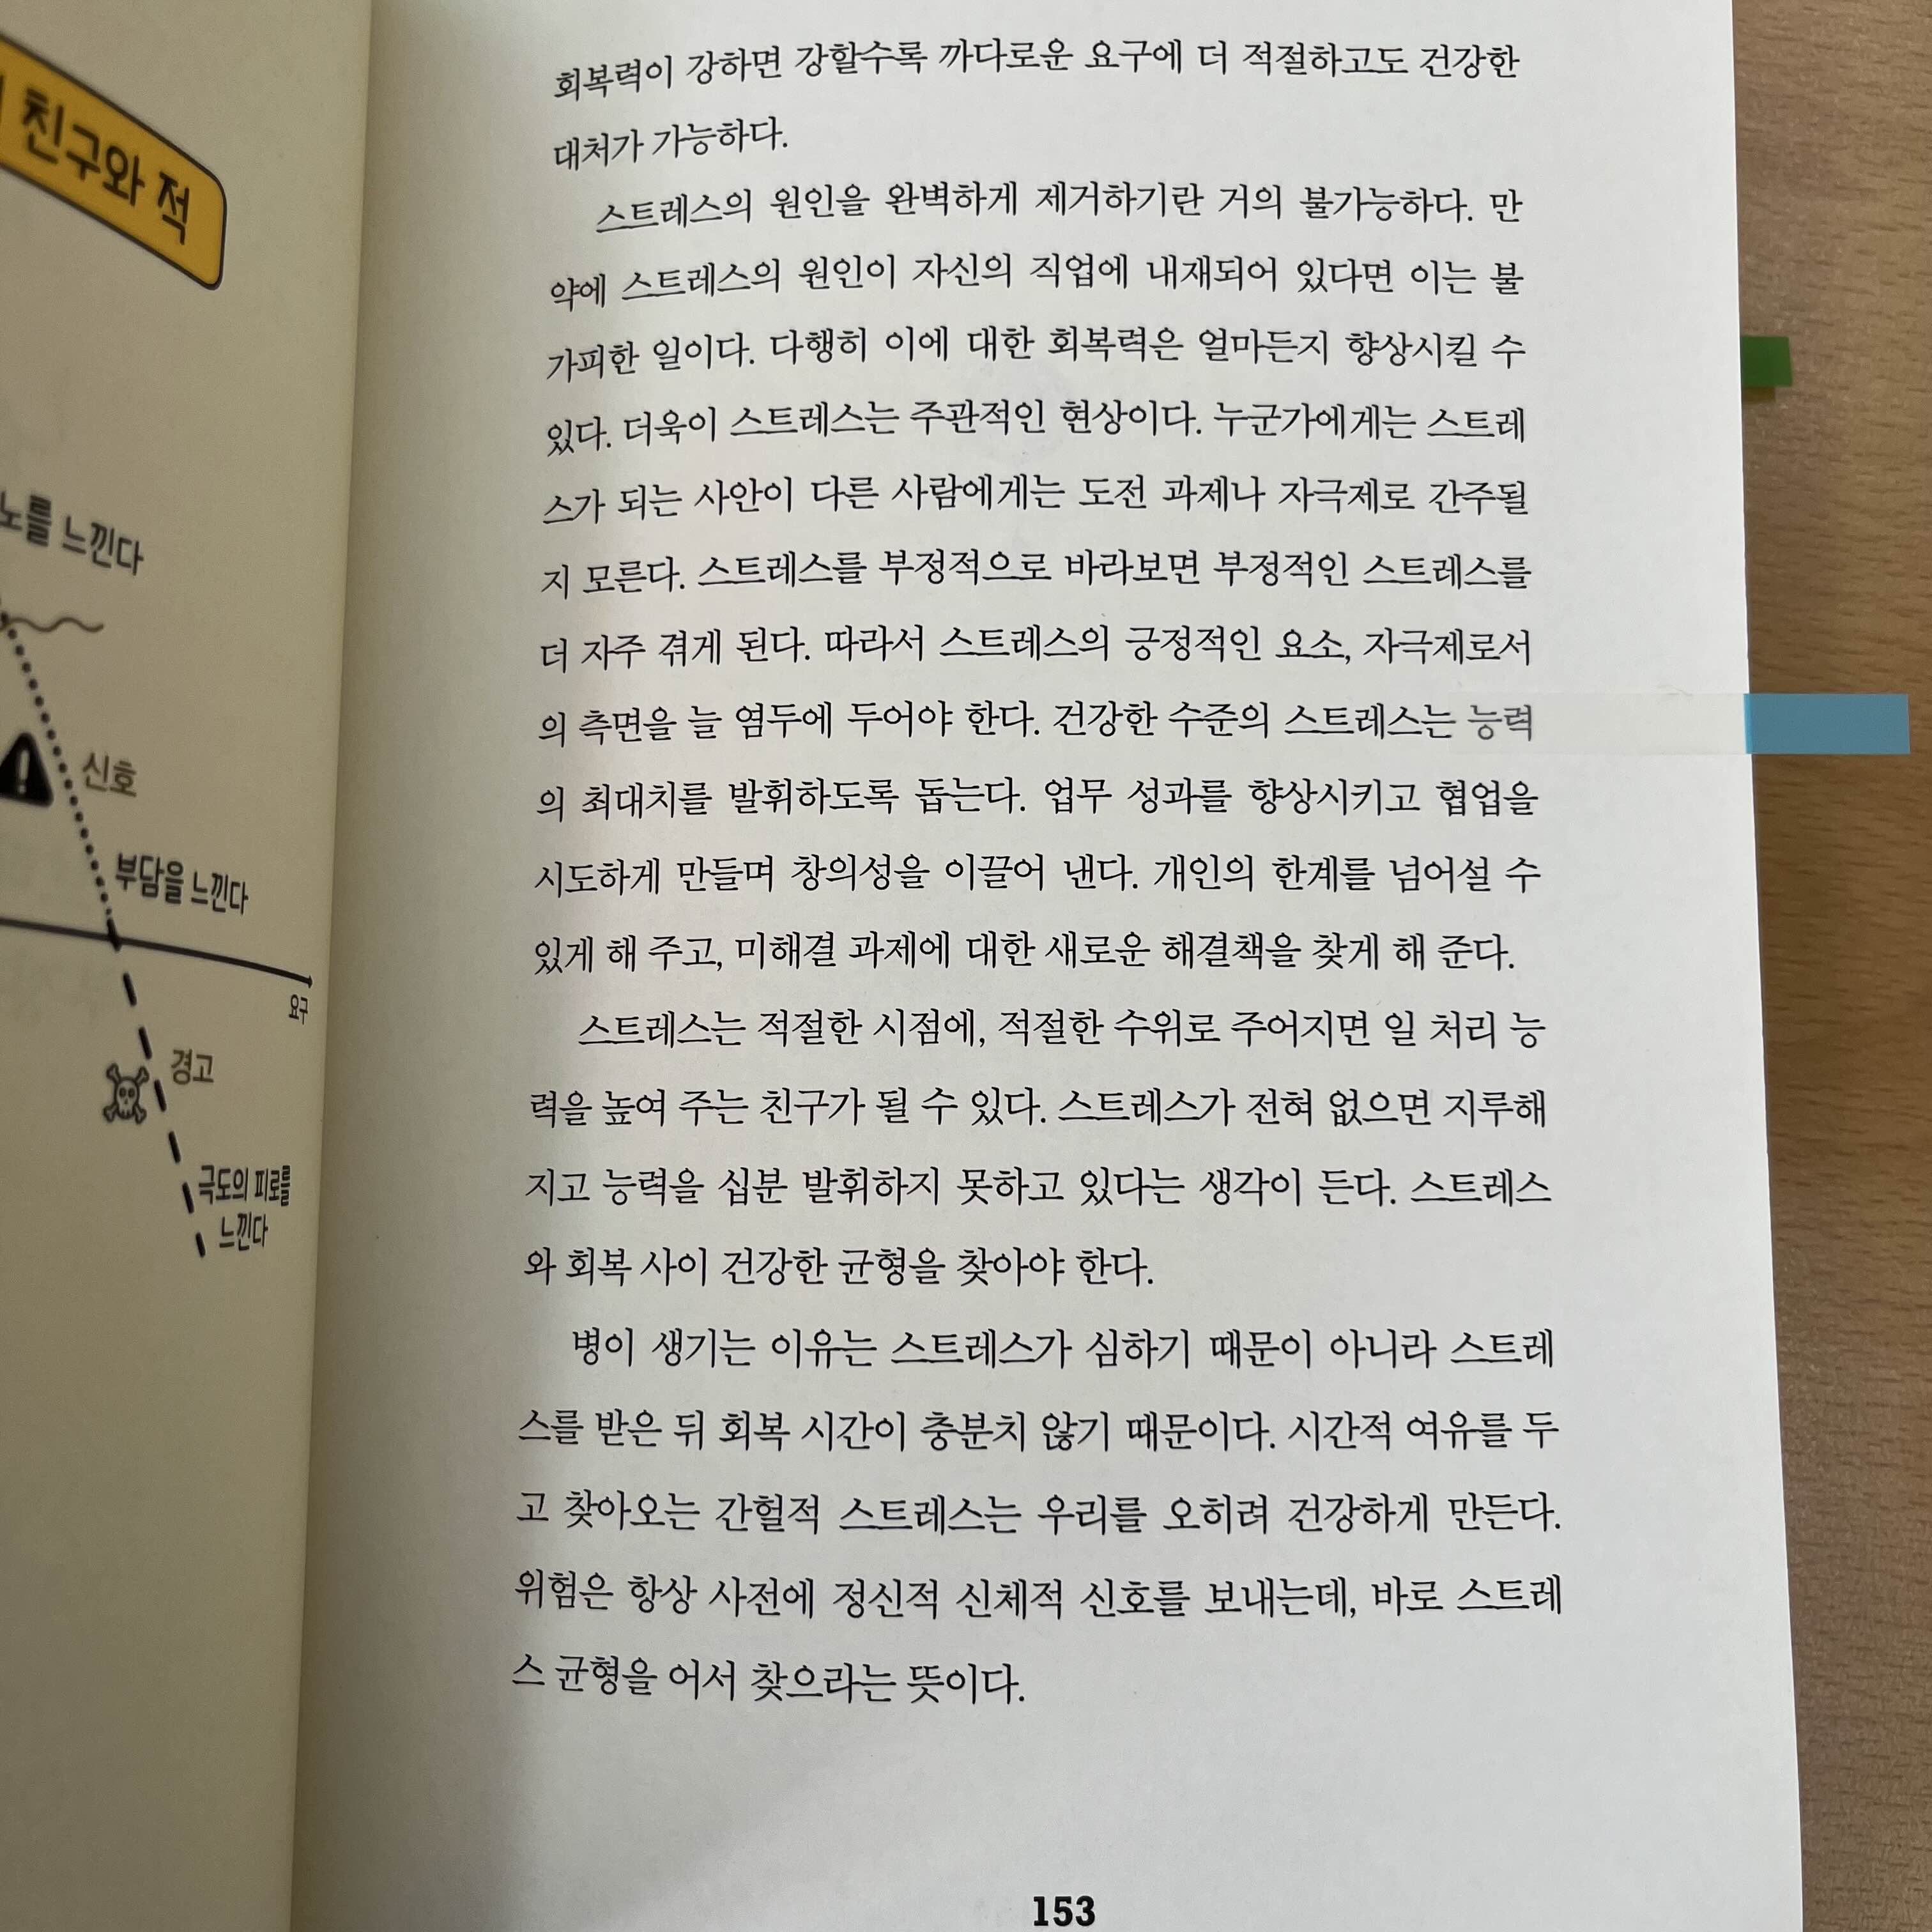 친구와 적
를 느낀다
신호
부담을 느낀다
요구
경고
극도의 피로를
느낀다
회복력이 강하면 강할수록 까다로운 요구에 더 적절하고도 건강한
대처가 가능하다.
스트레스의 원인을 완벽하게 제거하기란 거의 불가능하다. 만
약에 스트레스의 원인이 자신의 직업에 내재되어 있다면 이는 불
가피한 일이다. 다행히 이에 대한 회복력은 얼마든지 향상시킬 수
있다. 더욱이 스트레스는 주관적인 현상이다. 누군가에게는 스트레
스가 되는 사안이 다른 사람에게는 도전 과제나 자극제로 간주될
지 모른다. 스트레스를 부정적으로 바라보면 부정적인 스트레스를
더 자주 겪게 된다. 따라서 스트레스의 긍정적인 요소, 자극제로서
의 측면을 늘 염두에 두어야 한다. 건강한 수준의 스트레스는 능력
의 최대치를 발휘하도록 돕는다. 업무 성과를 향상시키고 협업을
시도하게 만들며 창의성을 이끌어 낸다. 개인의 한계를 넘어설 수
있게 해 주고, 미해결 과제에 대한 새로운 해결책을 찾게 해 준다.
스트레스는 적절한 시점에, 적절한 수위로 주어지면 일 처리 능
력을 높여 주는 친구가 될 수 있다. 스트레스가 전혀 없으면 지루해
지고 능력을 십분 발휘하지 못하고 있다는 생각이 든다. 스트레스
와 회복 사이 건강한 균형을 찾아야 한다.
병이 생기는 이유는 스트레스가 심하기 때문이 아니라 스트레
스를 받은 뒤 회복 시간이 충분치 않기 때문이다. 시간적 여유를 두
고 찾아오는 간헐적 스트레스는 우리를 오히려 건강하게 만든다.
위험은 항상 사전에 정신적 신체적 신호를 보내는데, 바로 스트레
스 균형을 어서 찾으라는 뜻이다.
153